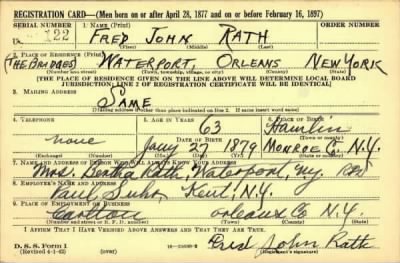 REGISTRATION CARD—(Men born on or after April 28, 1877 and on or before February 16, 1897)
SERIAL NUMBER 1. NAME (Print) ORDER NUMBER
122 FRED JOHN RATH
(First) (Middle) (Last)
2. PLACE OF RESIDENCE (Print)
(THE BRIDGES) WATERPORT, ORLEANS NEW YORK
(Number and street) (Town, township, village, or city) (County) (State)
[THE PLACE OF RESIDENCE GIVEN ON THE LINE ABOVE WILL DETERMINE LOCAL BOARD
JURISDICTION; LINE 2 OF REGISTRATION CERTIFICATE WILL BE IDENTICAL]
3. MAILING ADDRESS
SAME
[Mailing address if other than place indicated on line 2. If same insert word same]
4. TELEPHONE 5. AGE IN YEARS 6. PLACE OF BIRTH
63 Hamlin
none DATE OF BIRTH
Jany 27 1879 MONROE Co. N.Y.
(Exchange) (Number) (Mo.) (Day) (Yr.) (State or country)
7. NAME AND ADDRESS OF PERSON WHO WILL ALWAYS KNOW YOUR ADDRESS
Mrs. Bertha Rath, Waterport, N.Y.
8. EMPLOYER'S NAME AND ADDRESS
Paul Suhr, Kent, N.Y.
9. PLACE OF EMPLOYMENT OR BUSINESS
Carlton Orleans Co N.Y.
(Number and street or R. F. D. number) (Town) (County) (State)
I AFFIRM THAT I HAVE VERIFIED ABOVE ANSWERS AND THAT THEY ARE TRUE.
D. S. S. Form 1
(Revised 4-1-42) Fred John Rath
(Registrant's signature)